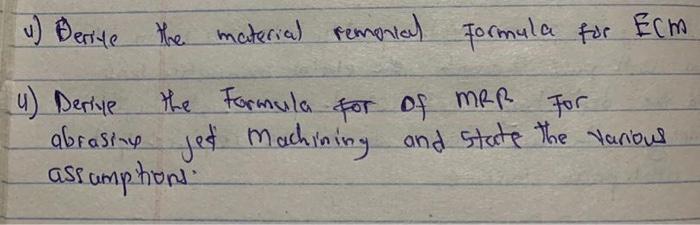 4) Derive the material removal Formula for ECM
4) Derive the Formula for Of MRR For
abrasive jet Machining and state the various
assumptions.